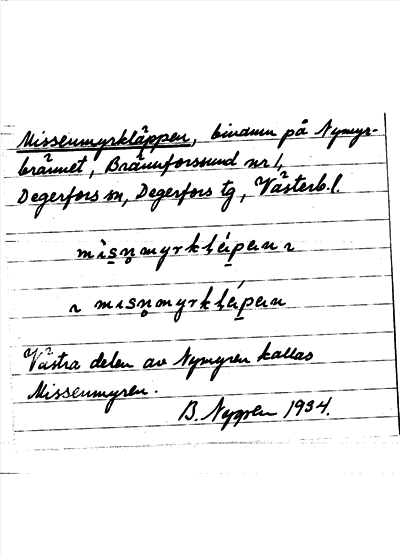 Missenmyrkläppen, bindamn på Nymyr-
brännet, Brännforssund nr 1,
Degerfors sn, Degerfors tg, Västerb. l.
Västra delen av Nymyren kallas
Missenmyren.
B. Nygren 1934.